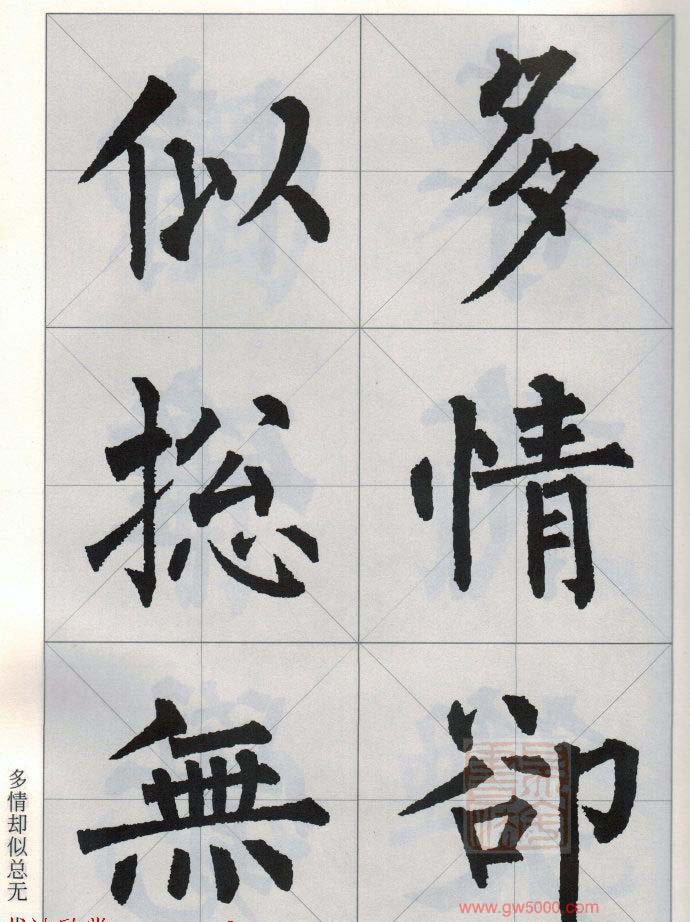 多情卻
似捴無
多情却似总无
www.gw5000.com